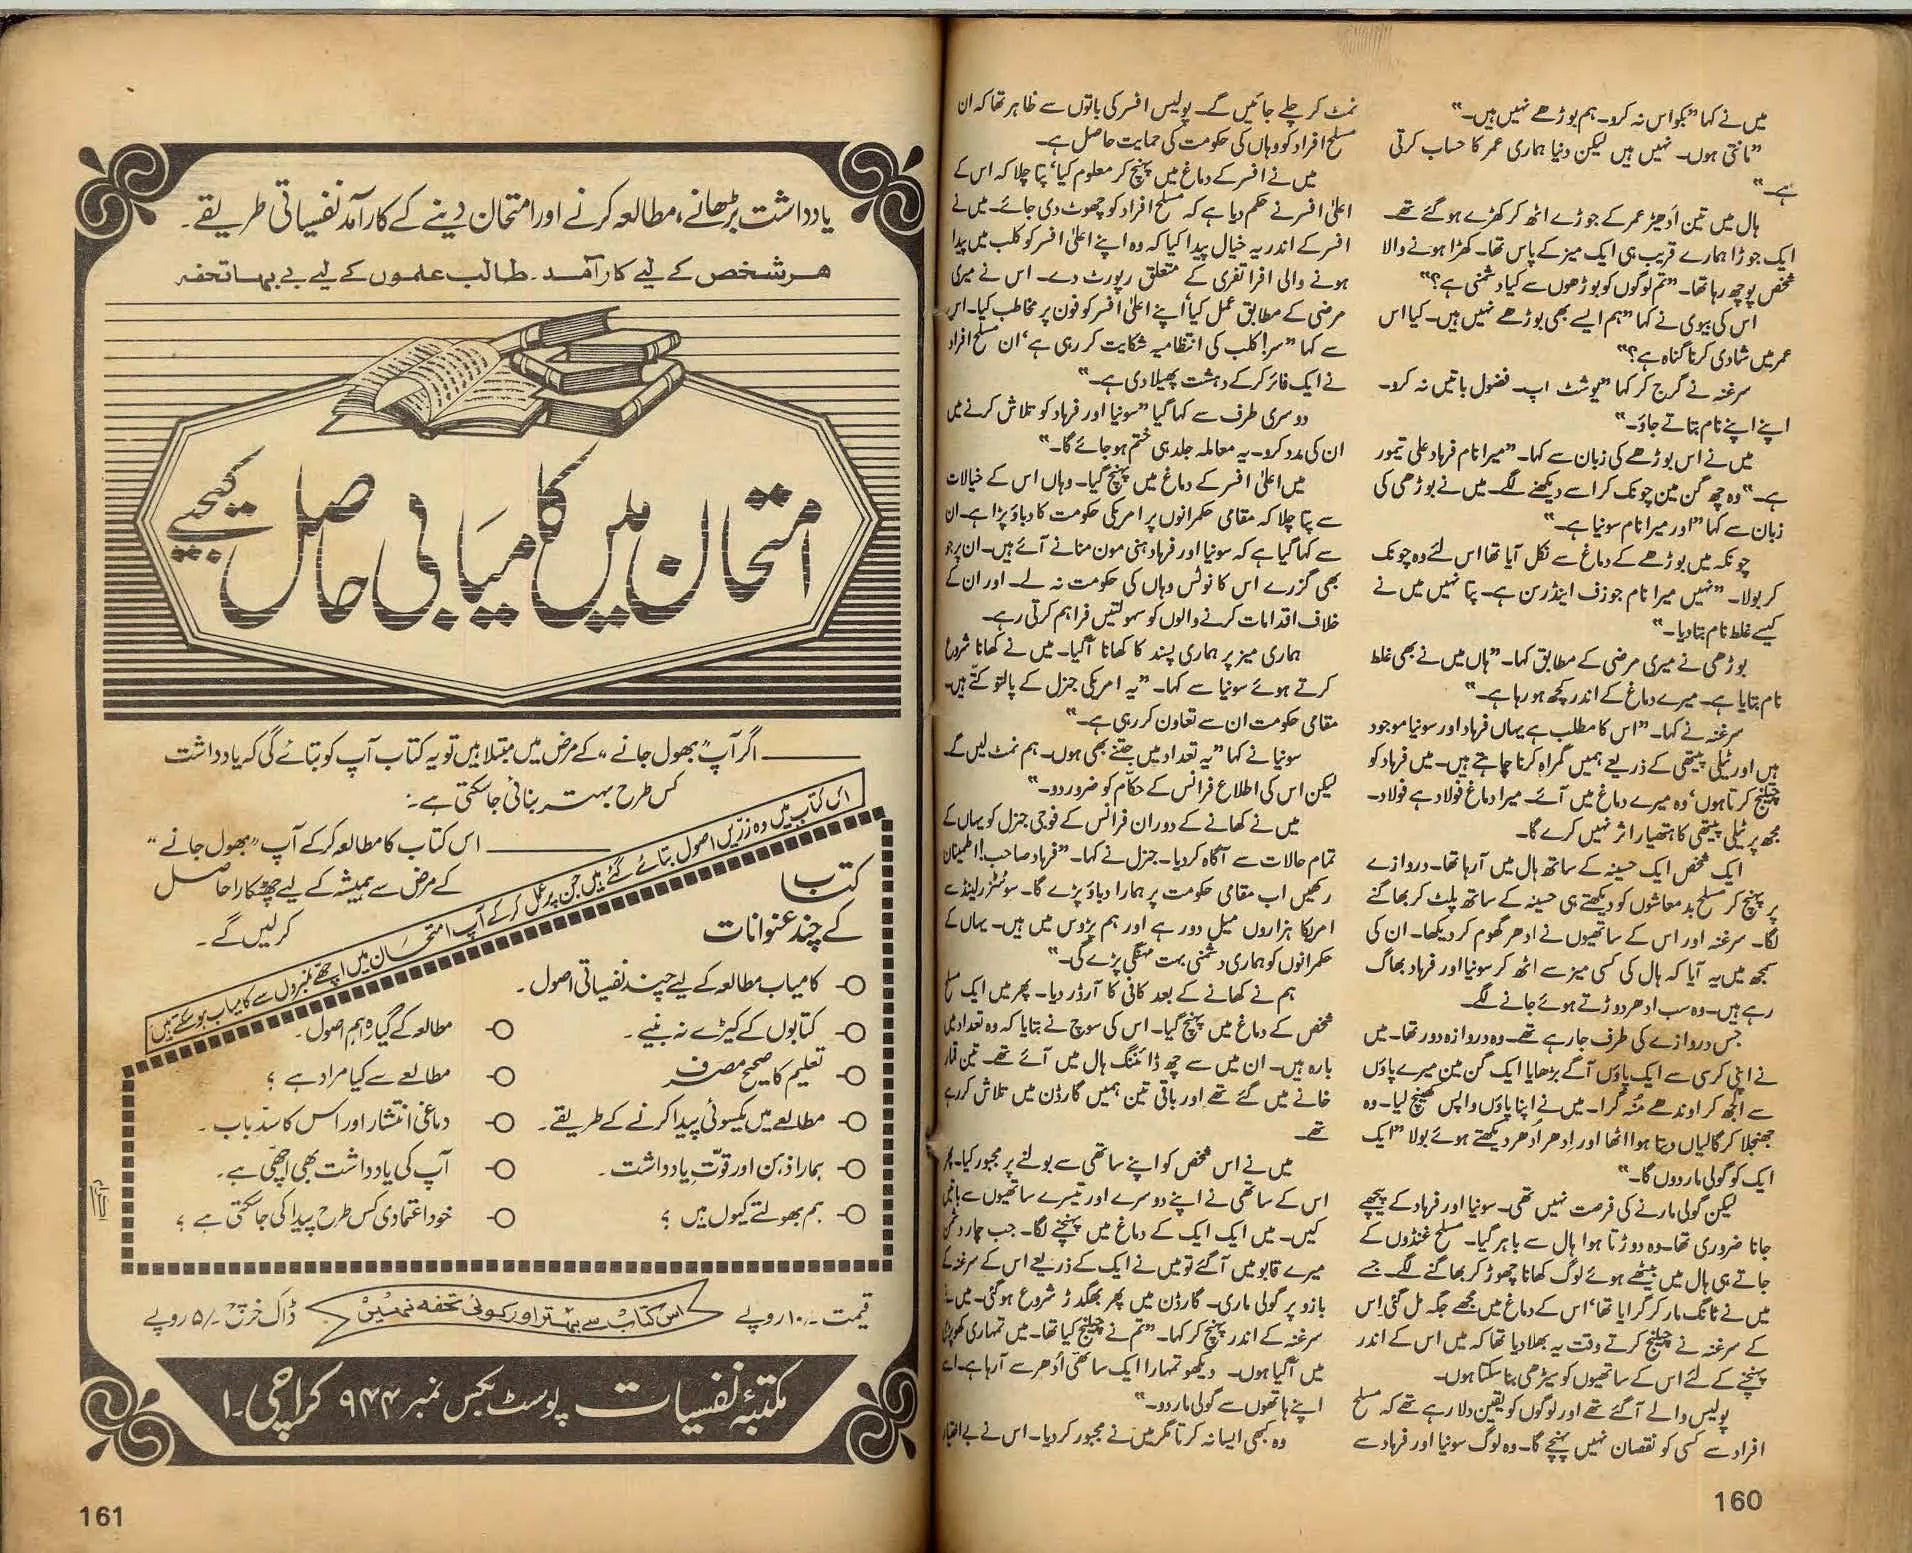 میں نے کہا "بکواس نہ کرو۔ ہم بوڑھے نہیں ہیں۔"
"مانتی ہوں۔ نہیں ہیں لیکن دنیا ہماری عمر کا حساب کرتی
ہے۔"
ہال میں تین اُدھیڑ عمر کے جوڑے اٹھ کر کھڑے ہو گئے تھے
ایک جوڑا ہمارے قریب ہی ایک میز کے پاس تھا۔ کھڑا ہونے والا
شخص پوچھ رہا تھا۔ "تم لوگوں کو بوڑھوں سے کیا دشمنی ہے؟"
اس کی بیوی نے کہا "ہم ایسے بھی بوڑھے نہیں ہیں۔ کیا اس
عمر میں شادی کرنا گناہ ہے؟"
سرغنہ نے گرج کر کہا "یو شٹ اپ۔ فضول باتیں نہ کرو۔
اپنے اپنے نام بتاتے جاؤ۔"
میں نے اس بوڑھے کی زبان سے کہا۔ "میرا نام فرہاد علی تیمور
ہے۔" وہ چھ گن مین چونک کر اسے دیکھنے لگے۔ میں نے بوڑھی کی
زبان سے کہا "اور میرا نام سونیا ہے۔"
چونکہ میں بوڑھے کے دماغ سے نکل آیا تھا اس لئے وہ چونک
کر بولا۔ "نہیں میرا نام جوزف اینڈرسن ہے۔ پتا نہیں میں نے
کیسے غلط نام بتا دیا۔"
بوڑھی نے میری مرضی کے مطابق کہا۔ "ہاں میں نے بھی غلط
نام بتایا ہے۔ میرے دماغ کے اندر کچھ ہو رہا ہے۔"
سرغنہ نے کہا۔ "اس کا مطلب ہے یہاں فرہاد اور سونیا موجود
ہیں اور ٹیلی پیتھی کے ذریعے ہمیں گمراہ کرنا چاہتے ہیں۔ میں فرہاد کو
چیلنج کرتا ہوں، وہ میرے دماغ میں آئے۔ میرا دماغ فولاد ہے فولاد۔
مجھ پر ٹیلی پیتھی کا ہتھیار اثر نہیں کرے گا۔
ایک شخص ایک حسینہ کے ساتھ ہال میں آ رہا تھا۔ دروازے
پر پہنچ کر مسلح بدمعاشوں کو دیکھتے ہی حسینہ کے ساتھ پلٹ کر بھاگنے
لگا۔ سرغنہ اور اس کے ساتھیوں نے ادھر گھوم کر دیکھا۔ ان کی
سمجھ میں یہ آیا کہ ہال کی کسی میز سے اٹھ کر سونیا اور فرہاد بھاگ
رہے ہیں۔ وہ سب ادھر دوڑتے ہوئے جانے لگے۔
جس دروازے کی طرف جا رہے تھے۔ وہ دروازہ دور تھا۔ میں
نے اپنی کرسی سے ایک پاؤں آگے بڑھایا ایک گن مین میرے پاؤں
سے الجھ کر اوندھے مُنہ گرا۔ میں نے اپنا پاؤں واپس کھینچ لیا۔ وہ
جھنجلا کر گالیاں دیتا ہوا اٹھا اور ادھر اُدھر دیکھتے ہوئے بولا "ایک
ایک کو گولی مار دوں گا۔"
لیکن گولی مارنے کی فرصت نہیں تھی۔ سونیا اور فرہاد کے پیچھے
جانا ضروری تھا۔ وہ دوڑتا ہوا ہال سے باہر گیا۔ مسلح غنڈوں کے
جاتے ہی ہال میں بیٹھے ہوئے لوگ کھانا چھوڑ کر بھاگنے لگے۔ جسے
میں نے ٹانگ مار کر گرایا تھا، اس کے دماغ میں مجھے جگہ مل گئی اس
کے سرغنہ نے چیلنج کرتے وقت یہ بھلا دیا تھا کہ میں اس کے اندر
پہنچنے کے لئے اس کے ساتھیوں کو سیڑھی بنا سکتا ہوں۔
پولیس والے آ گئے تھے اور لوگوں کو یقین دلا رہے تھے کہ مسلح
افراد سے کسی کو نقصان نہیں پہنچے گا۔ وہ لوگ سونیا اور فرہاد سے
نمٹ کر چلے جائیں گے۔ پولیس افسر کی باتوں سے ظاہر تھا کہ ان
مسلح افراد کو وہاں کی حکومت کی حمایت حاصل ہے۔
میں نے افسر کے دماغ میں پہنچ کر معلوم کیا، پتا چلا کہ اس کے
اعلیٰ افسر نے حکم دیا ہے کہ مسلح افراد کو چھوٹ دی جائے۔ میں نے
افسر کے اندر یہ خیال پیدا کیا کہ وہ اپنے اعلیٰ افسر کو کلب میں پیدا
ہونے والی افراتفری کے متعلق رپورٹ دے۔ اس نے میری
مرضی کے مطابق عمل کیا، اپنے اعلیٰ افسر کو فون پر مخاطب کیا۔ اس
سے کہا "سر! کلب کی انتظامیہ شکایت کر رہی ہے، ان مسلح افراد
نے ایک فائر کر کے دہشت پھیلا دی ہے۔"
دوسری طرف سے کہا گیا "سونیا اور فرہاد کو تلاش کرنے میں
ان کی مدد کرو۔ یہ معاملہ جلد ہی ختم ہو جائے گا۔"
میں اعلیٰ افسر کے دماغ میں پہنچ گیا۔ وہاں اس کے خیالات
سے پتا چلا کہ مقامی حکمرانوں پر امریکی حکومت کا دباؤ پڑا ہے۔ ان
سے کہا گیا ہے کہ سونیا اور فرہاد ہنی مون منانے آئے ہیں۔ ان پر جو
بھی گزرے اس کا نوٹس وہاں کی حکومت نہ لے۔ اور ان کے
خلاف اقدامات کرنے والوں کو سہولتیں فراہم کرتی رہے۔
ہماری میز پر ہماری پسند کا کھانا آ گیا۔ میں نے کھانا شروع
کرتے ہوئے سونیا سے کہا۔ "یہ امریکی جنرل کے پالتو کتے ہیں۔
مقامی حکومت ان سے تعاون کر رہی ہے۔"
سونیا نے کہا "یہ تعداد میں جتنے بھی ہوں۔ ہم نمٹ لیں گے
لیکن اس کی اطلاع فرانس کے حکّام کو ضرور دو۔"
میں نے کھانے کے دوران فرانس کے فوجی جنرل کو یہاں کے
تمام حالات سے آگاہ کر دیا۔ جنرل نے کہا۔ "فرہاد صاحب! اطمینان
رکھیں اب مقامی حکومت پر ہمارا دباؤ پڑے گا۔ سوئٹزر لینڈ سے
امریکا ہزاروں میل دور ہے اور ہم پڑوس میں ہیں۔ یہاں کے
حکمرانوں کو ہماری دشمنی بہت مہنگی پڑے گی۔"
ہم نے کھانے کے بعد کافی کا آرڈر دیا۔ پھر میں ایک مسلح
شخص کے دماغ میں پہنچ گیا۔ اس کی سوچ نے بتایا کہ وہ تعداد میں
بارہ ہیں۔ ان میں سے چھ ڈائننگ ہال میں آئے تھے۔ تین قمار
خانے میں گئے تھے اور باقی تین ہمیں گارڈن میں تلاش کر رہے
تھے۔
میں نے اس شخص کو اپنے ساتھی سے بولنے پر مجبور کیا۔ پھر
اس کے ساتھی نے اپنے دوسرے اور تیسرے ساتھیوں سے باتیں
کیں۔ میں ایک ایک کے دماغ میں پہنچنے لگا۔ جب چار دشمن
میرے قابو میں آ گئے تو میں نے ایک کے ذریعے اس کے سرغنہ کے
بازو پر گولی ماری۔ گارڈن میں پھر بھگدڑ شروع ہو گئی۔ میں نے
سرغنہ کے اندر پہنچ کر کہا۔ "تم نے چیلنج کیا تھا۔ میں تمہاری کھوپڑی
میں آ گیا ہوں۔ دیکھو تمہارا ایک ساتھی اُدھر سے آ رہا ہے۔ اسے
اپنے ہاتھوں سے گولی مار دو۔"
وہ کبھی ایسا نہ کرتا مگر میں نے مجبور کر دیا۔ اس نے بے اختیار
160
یادداشت بڑھانے، مطالعہ کرنے اور امتحان دینے کے کارآمد نفسیاتی طریقے۔
ہر شخص کے لیے کارآمد۔ طالب علموں کے لیے بے بہا تحفہ
امتحان میں کامیابی حاصل کیجیے
اگر آپ "بھول جانے" کے مرض میں مبتلا ہیں تو یہ کتاب آپ کو بتائے گی کہ یادداشت
کس طرح بہتر بنائی جا سکتی ہے۔
اس کتاب کا مطالعہ کر کے آپ "بھول جانے"
کے مرض سے ہمیشہ کے لیے چھٹکارا حاصل
کر لیں گے۔
اس کتاب میں وہ زرّیں اصول بتائے گئے ہیں جن پر عمل کر کے آپ امتحان میں اچھے نمبروں سے کامیاب ہو سکتے ہیں
کتاب
کے چند عنوانات
کامیاب مطالعہ کے لیے چند نفسیاتی اصول۔
کتابوں کے کیڑے نہ بنیے۔
مطالعہ کے گیارہ اہم اصول۔
تعلیم کا صحیح مصرف
مطالعے سے کیا مراد ہے ؟
مطالعے میں یکسوئی پیدا کرنے کے طریقے۔
دماغی انتشار اور اس کا سدّباب۔
ہمارا ذہن اور قوّتِ یادداشت۔
آپ کی یادداشت بھی اچھّی ہے۔
ہم بھولتے کیوں ہیں ؟
خود اعتمادی کس طرح پیدا کی جا سکتی ہے ؟
قیمت ۔/۱۰ روپے
اس کتاب سے بہتر اور کوئی تحفہ نہیں
ڈاک خرچ ۔/۵ روپے
مکتبۂ نفسیات پوسٹ بکس نمبر ۹۴۴ کراچی۔۱
161